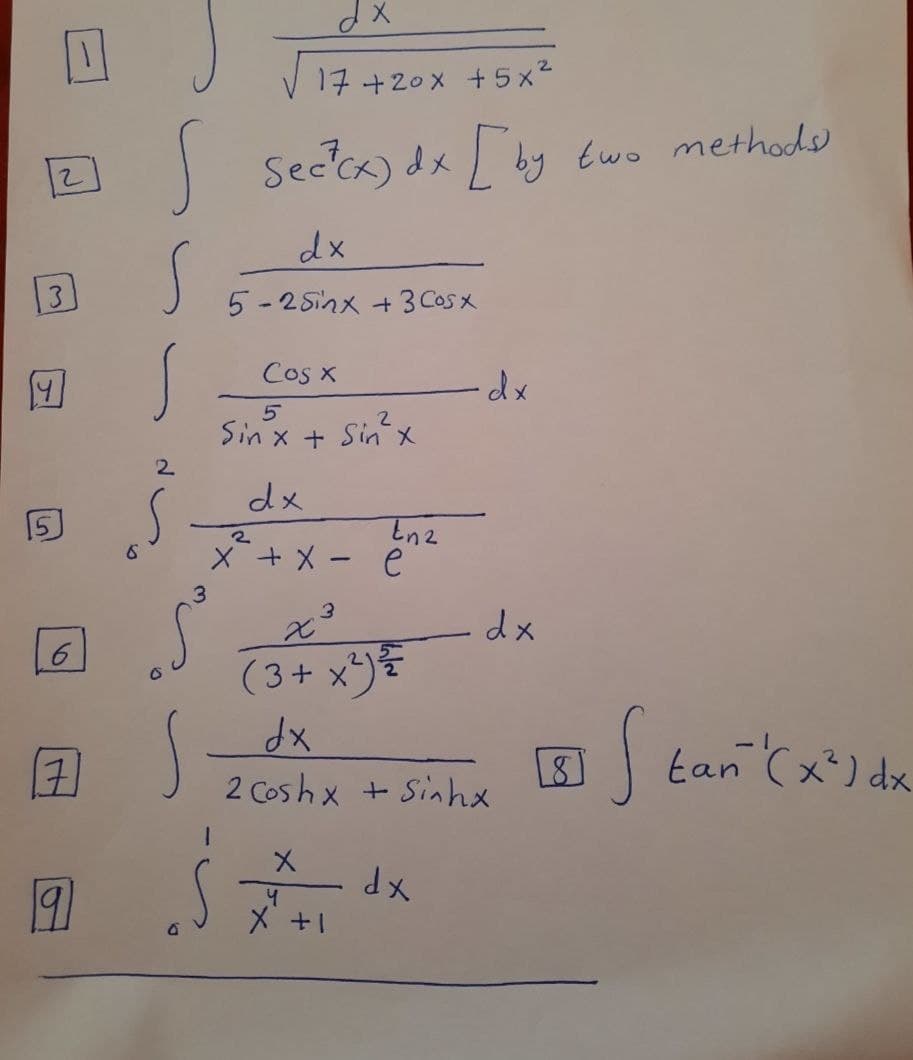 1 ∫ dx / √(17 + 20x + 5x²)
2 ∫ Sec⁷(x) dx [ by two methods
3 ∫ dx / (5 - 2 Sinx + 3 Cosx)
4 ∫ Cos x / (Sin⁵x + Sin²x) dx
5 ∫₀² dx / (x² + x - e^(ln2))
6 ∫₀³ x³ / (3 + x²)^(5/2) dx
7 ∫ dx / (2 coshx + Sinhx) 8 ∫ tan⁻¹(x²) dx
9 ∫₀¹ x / (x⁴ + 1) dx